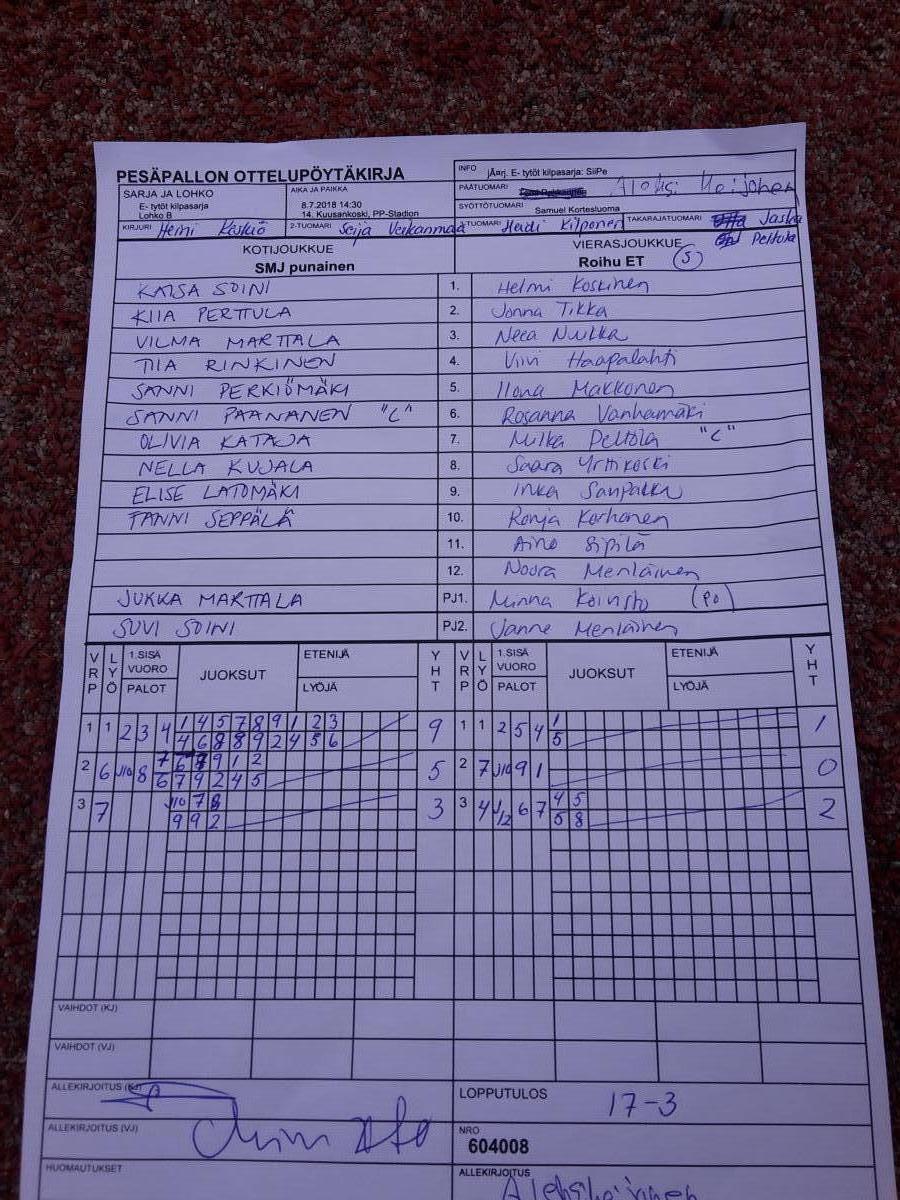 PESÄPALLON OTTELUPÖYTÄKIRJA
INFO jÄarj. E- tytöt kilpasarja: SiiPe
SARJA JA LOHKO
E- tytöt kilpasarja
Lohko B
AIKA JA PAIKKA
8.7.2018 14:30
14. Kuusankoski, PP-Stadion
PÄÄTUOMARI Aleksi
SYÖTTÖTUOMARI Samuel Kortesluoma
KIRJURI Henni
2-TUOMARI Seija
3-TUOMARI Heidi Kilponen
TAKARAJATUOMARI Jaska
Peltola
KOTIJOUKKUE
SMJ punainen
VIERASJOUKKUE
Roihu ET (S)
KAISA SOINI 1. Helmi Koskinen
KIIA PERTTULA 2. Jonna Tikka
VILMA MARTTALA 3. Neea
TIIA RINKINEN 4. Viivi Haapalahti
SANNI PERKIÖMÄKI 5. Ilona Makkonen
SANNI PAANANEN "C" 6. Rosanna Vanhamäki
OLIVIA KATAJA 7. Milka Peltola "C"
NELLA KUJALA 8. Saara Yrttikoski
ELISE LATOMÄKI 9. Inka
FANNI SEPPÄLÄ 10. Ronja Korhonen
11. Aino Sipilä
12. Noora Meriläinen
JUKKA MARTTALA PJ1. Minna Koivisto (PO)
SUVI SOINI PJ2. Janne Meriläinen
VRP LYÖ 1.SISÄ VUORO PALOT JUOKSUT ETENIJÄ LYÖJÄ YHT VRP LYÖ 1.SISÄ VUORO PALOT JUOKSUT ETENIJÄ LYÖJÄ YHT
1 1 2 3 4 1 4 5 7 8 9 1 2 3 9 1 1 2 5 4 1 1
4 6 8 8 9 2 4 5 6 5
2 6 J10 8 7 9 1 2 5 2 7 J10 9 1 0
6 7 9 2 4 5
3 7 J10 7 8 3 3 4 J12 6 7 4 5 2
9 9 2 5 8
VAIHDOT (KJ)
VAIHDOT (VJ)
ALLEKIRJOITUS (KJ)
LOPPUTULOS 17-3
ALLEKIRJOITUS (VJ)
NRO
604008
HUOMAUTUKSET
ALLEKIRJOITUS